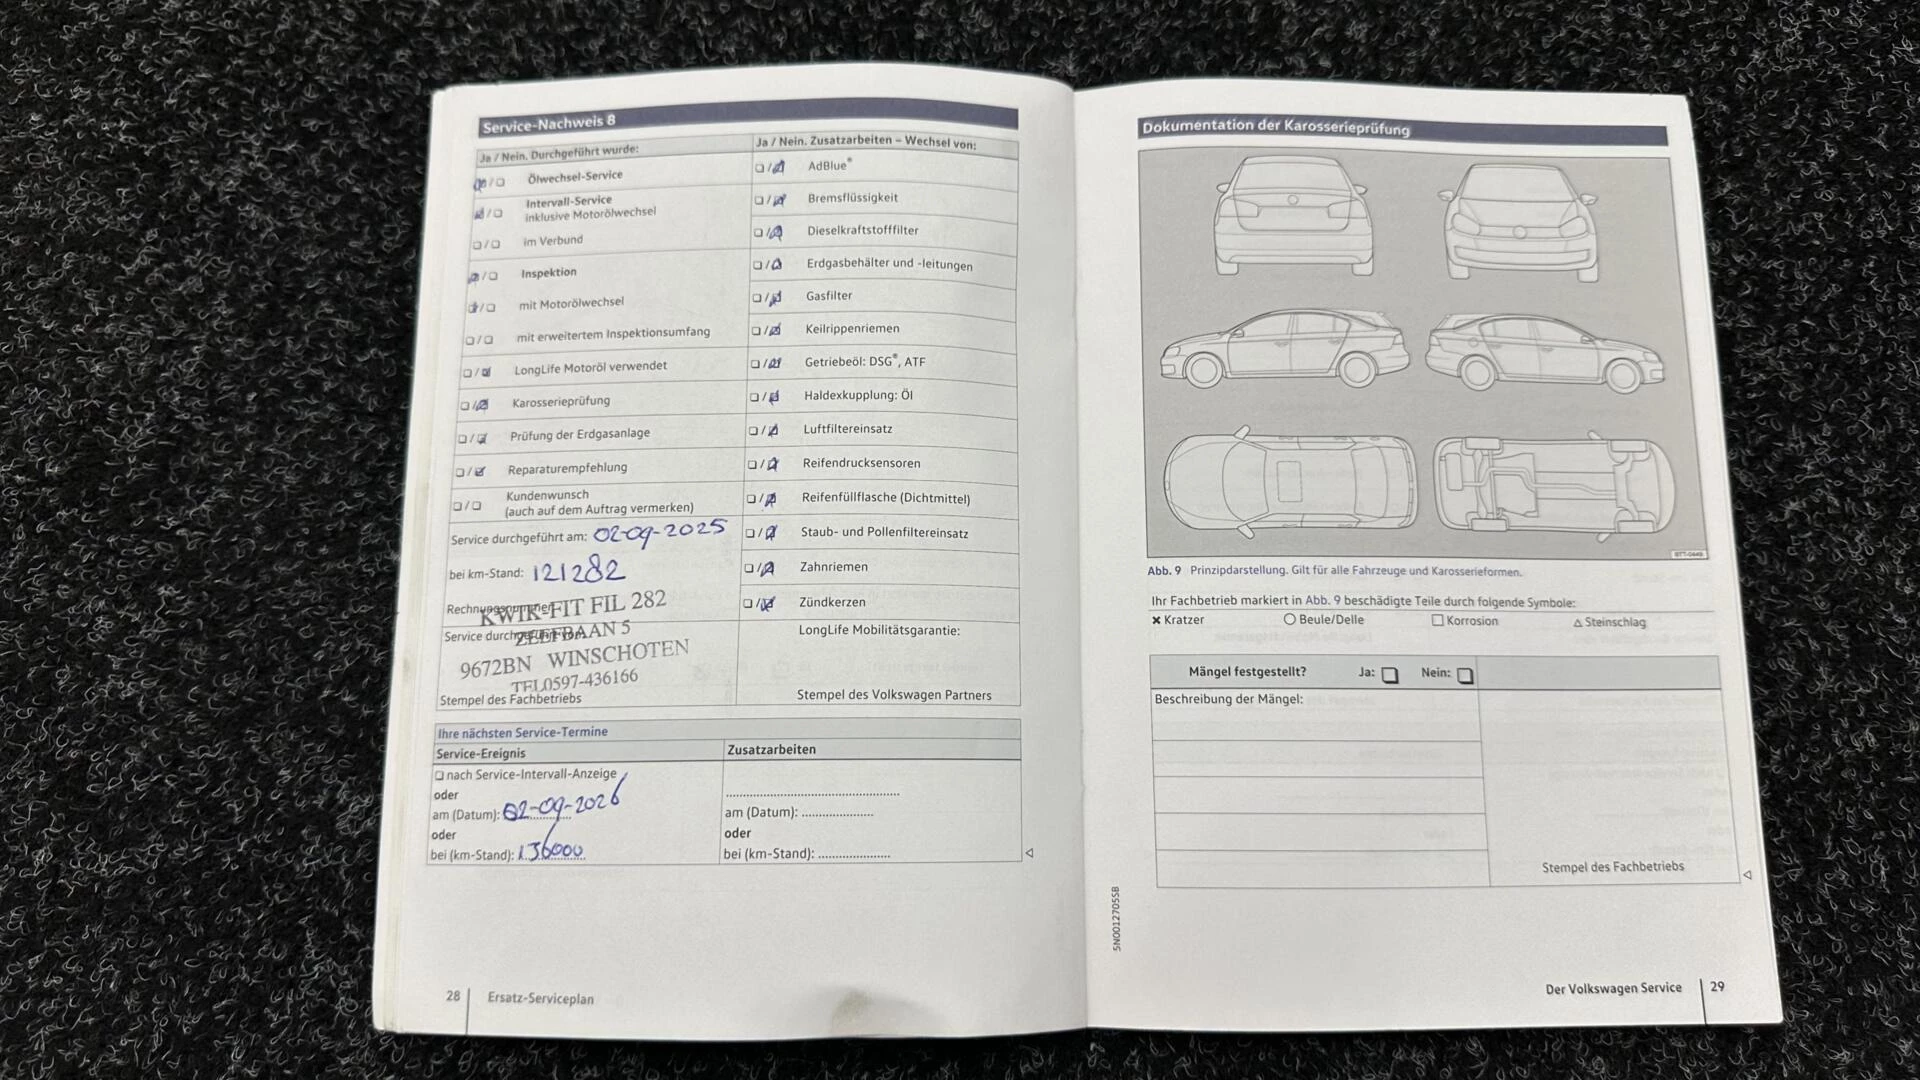 Service-Nachweis 8
Ja / Nein. Durchgeführt wurde:
Ölwechsel-Service
Intervall-Service
inklusive Motorölwechsel
im Verbund
Inspektion
mit Motorölwechsel
mit erweitertem Inspektionsumfang
LongLife Motoröl verwendet
Karosserieprüfung
Prüfung der Erdgasanlage
Reparaturempfehlung
Kundenwunsch
(auch auf dem Auftrag vermerken)
Service durchgeführt am: 02-09-2025
bei km-Stand: 121282
Rechnungsnummer:
KWIK-FIT FIL 282
Service durchgeführt von:
ZEEFBAAN 5
9672BN WINSCHOTEN
TEL0597-436166
Stempel des Fachbetriebs
Ja / Nein. Zusatzarbeiten – Wechsel von:
AdBlue®
Bremsflüssigkeit
Dieselkraftstofffilter
Erdgasbehälter und -leitungen
Gasfilter
Keilrippenriemen
Getriebeöl: DSG®, ATF
Haldexkupplung: Öl
Luftfiltereinsatz
Reifendrucksensoren
Reifenfüllflasche (Dichtmittel)
Staub- und Pollenfiltereinsatz
Zahnriemen
Zündkerzen
LongLife Mobilitätsgarantie:
Stempel des Volkswagen Partners
Ihre nächsten Service-Termine
Service-Ereignis
nach Service-Intervall-Anzeige
oder
am (Datum): 02-09-2026
oder
bei (km-Stand): 136000
Zusatzarbeiten
am (Datum): ......................
oder
bei (km-Stand): ......................
28 Ersatz-Serviceplan
Dokumentation der Karosserieprüfung
BTT-0449
Abb. 9 Prinzipdarstellung. Gilt für alle Fahrzeuge und Karosserieformen.
Ihr Fachbetrieb markiert in Abb. 9 beschädigte Teile durch folgende Symbole:
× Kratzer ○ Beule/Delle □ Korrosion △ Steinschlag
Mängel festgestellt? Ja: Nein:
Beschreibung der Mängel:
Stempel des Fachbetriebs
5N0012705SB
Der Volkswagen Service 29